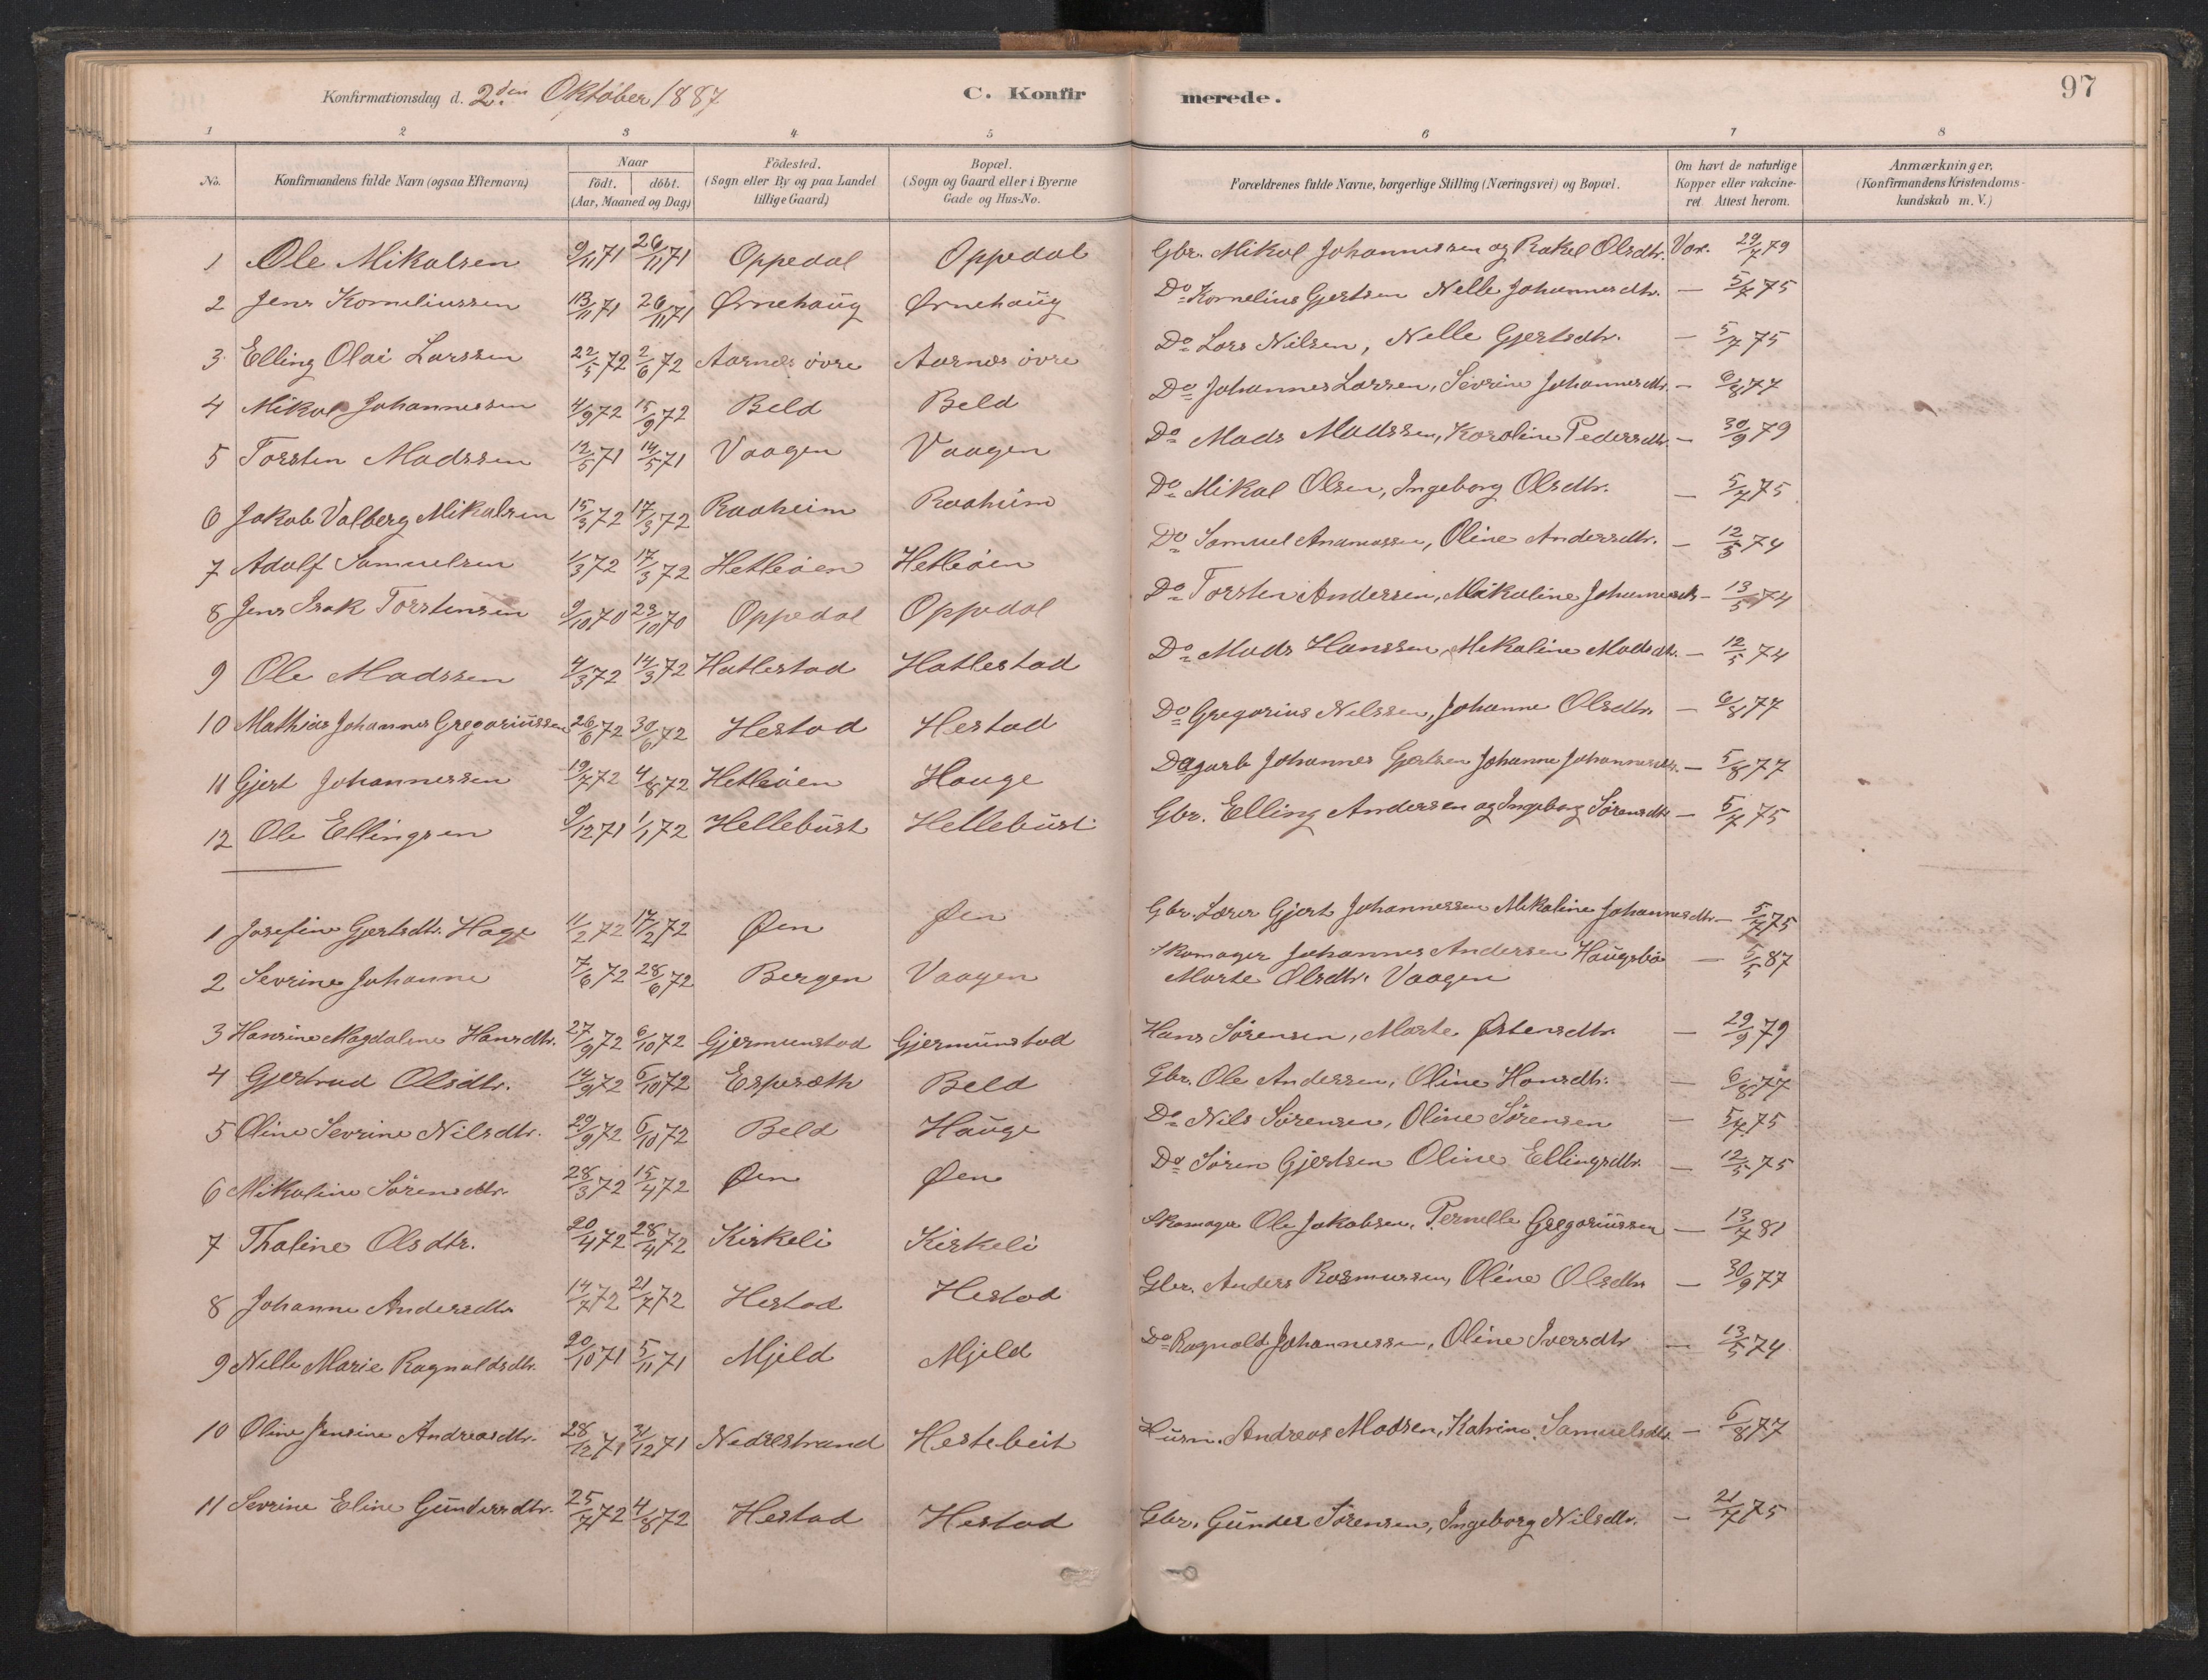 97
Konfirmationsdag d. 2den Oktober 1887 C. Konfirmerede.
1 2 3 4 5 6 7 8
No. Konfirmandens fulde Navn (ogsaa Efternavn) Naar født. døbt. (Aar, Maaned og Dag) Födested. (Sogn eller By og paa Landet tillige Gaard) Bopæl. (Sogn og Gaard eller i Byerne Gade og Hus-No. Forældrenes fulde Navne, borgerlige Stilling (Næringsvei) og Bopæl. Om havt de naturlige Kopper eller vakcineret. Attest herom. Anmærkninger, (Konfirmandens Kristendomskundskab m. V.)
1 Ole Mikalsen 9/11 71 26/11 71 Oppedal Oppedal Gbr. Mikal Johannessen og Rakel Olsdtr. Vax. 29/7 79
2 Jens Korneliussen 13/11 71 26/11 71 Ørnehaug Ørnehaug Do Kornelius Gjertsen Nelle Johannesdtr. — 5/7 75
3 Elling Olai Larssen 22/5 72 2/6 72 Aarnes övre Aarnes övre Do Lars Nilsen, Nelle Gjertsdtr. — 5/7 75
4 Mikal Johannessen 4/9 72 15/9 72 Beld Beld Do Johannes Larsen, Sevrine Johannesdtr. — 6/8 77
5 Torsten Madssen 12/5 71 14/5 71 Vaagen Vaagen Do Mads Madssen, Karoline Pedersdtr. — 30/9 79
6 Jakob Valberg Mikalsen 15/3 72 17/3 72 Raaheim Raaheim Do Mikal Olsen, Ingeborg Olsdtr. — 5/7 75
7 Adolf Samuelsen 1/3 72 17/3 72 Hetleöen Hetleöen Do Samuel Ananiassen, Oline Andersdtr. — 12/5 74
8 Jens Isak Torstensen 9/10 70 23/10 70 Oppedal Oppedal Do Torsten Andersen, Mikaline Johannesdtr — 13/5 74
9 Ole Madssen 4/3 72 14/3 72 Hatlestad Hatlestad Do Mads Hanssen, Mikaline Madsdtr. — 12/5 74
10 Mathias Johannes Gregoriussen 26/6 72 30/6 72 Hestad Hestad Do Gregorius Nilssen, Johanne Olsdtr. — 6/8 77
11 Gjert Johannessen 19/7 72 4/8 72 Hetleöen Hauge Dagarb Johannes Gjertsen Johanne Johannesdtr. — 5/8 77
12 Ole Ellingsen 9/12 71 1/1 72 Hellebust Hellebust Gbr. Elling Andersen og Ingeborg Sörensdtr — 5/7 75
1 Josefine Gjertsdtr. Hage 11/2 72 17/2 72 Øen Øen Gbr. Lærer Gjert Johannessen Mikaline Johannesdtr — 5/7 75
2 Sevrine Johanne 7/6 72 28/6 72 Bergen Vaagen Skomager Johannes Andersen Haugsbö — 5/5 87
Marte Olsdtr. Vaagen
3 Hansine Magdalene Hansdtr. 27/9 72 6/10 72 Gjermunstad Gjermunstad Hans Sörensen, Marte Østensdtr. — 29/9 79
4 Gjertrud Olsdtr. 14/9 72 6/10 72 Espesæth Beld Gbr. Ole Andersen, Oline Hansdtr. — 6/8 77
5 Oline Sevrine Nilsdtr. 29/9 72 6/10 72 Beld Hauge Do Nils Sörensen, Oline Sörensen — 5/7 75
6 Mikaline Sörensdtr. 28/3 72 15/4 72 Øen Øen Do Sören Gjertsen Oline Ellingsdtr. — 12/5 75
7 Thaline Olsdtr. 20/4 72 28/4 72 Kirkeli Kirkeli Skomager Ole Jakobsen, Pernelle Gregoriussen — 13/7 81
8 Johanne Andersdtr 14/7 72 21/7 72 Hestad Hestad Gbr. Anders Rasmussen, Oline Olsdtr — 30/9 77
9 Nelle Marie Ragnaldsdtr. 20/10 71 5/11 71 Mjeld Mjeld Do Ragnald Johannessen, Oline Iversdtr — 13/5 74
10 Oline Jensine Andreasdtr. 28/12 71 31/12 71 Nedrestrand Hestebeit Husm. Andreas Madsen, Katrine Samuelsdtr. — 6/8 77
11 Sevrine Eline Gundersdtr. 25/7 72 4/8 72 Hestad Hestad Gbr. Gunder Sörensen, Ingeborg Nilsdtr. — 21/7 75